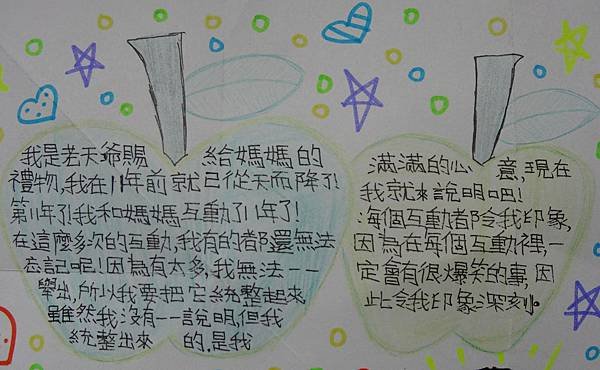 我是老天爺賜給媽媽的
禮物,我在11年前就已從天而降了!
第11年了!我和媽媽互動了11年了!
在這麼多次的互動,我有的都還無法
忘記呢!因為有太多,我無法一一
舉出,所以我要把它統整起來,
雖然我沒有一一說明,但我
統整出來的,是我
滿滿的心意,現在
我就來說明吧!
每個互動都令我印象,
因為在每個互動裡,一
定會有很爆笑的事,因
此令我印象深刻。